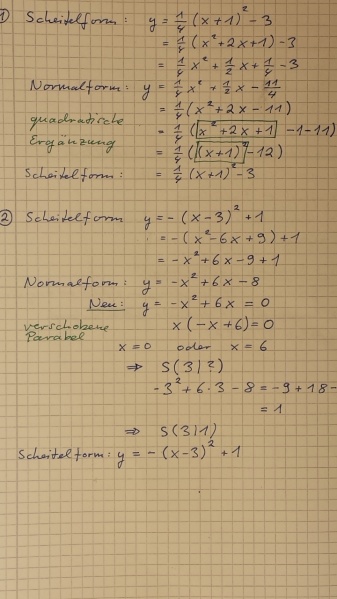 ① Scheitelform: y = 1/4 (x+1)² - 3
= 1/4 (x²+2x+1) - 3
= 1/4 x² + 1/2 x + 1/4 - 3
Normalform: y = 1/4 x² + 1/2 x - 11/4
= 1/4 (x²+2x-11)
quadratische
Ergänzung
= 1/4 (x²+2x+1 -1-11)
= 1/4 ((x+1)²-12)
Scheitelform: = 1/4 (x+1)²-3
② Scheitelform y = -(x-3)²+1
= -(x²-6x+9)+1
= -x²+6x-9+1
Normalform: y = -x²+6x-8
Neu: y = -x²+6x = 0
verschobene
Parabel
x(-x+6)=0
x=0 oder x=6
⇒ S(3|?)
-3²+6·3-8 = -9+18-
= 1
⇒ S(3|1)
Scheitelform: y = -(x-3)²+1